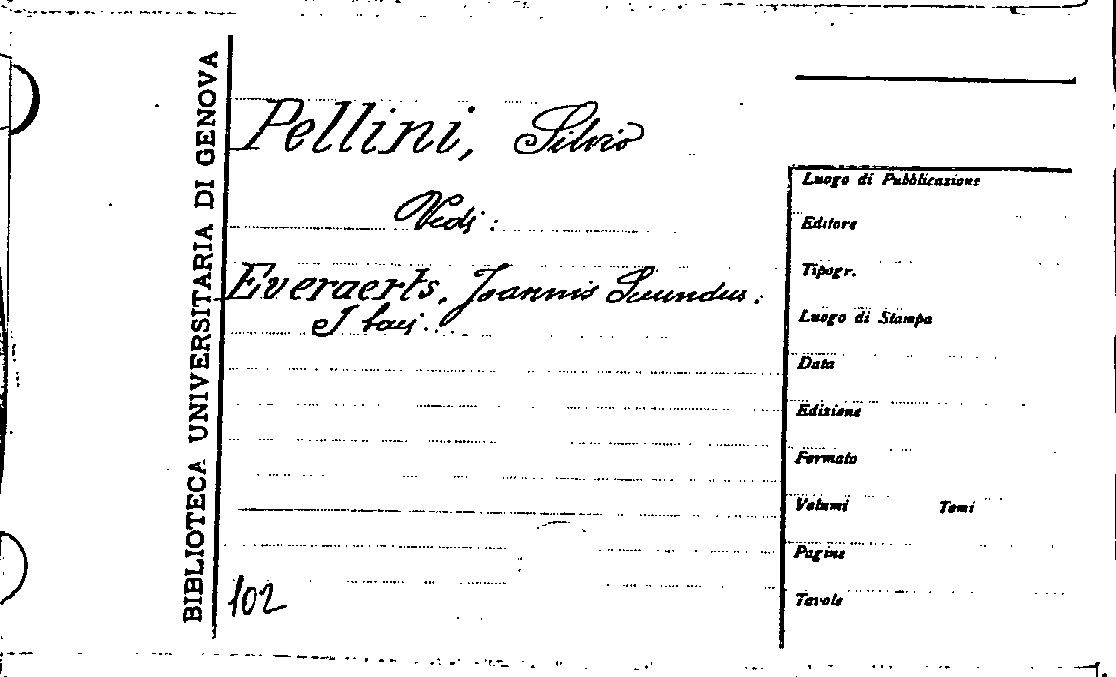 BIBLIOTECA UNIVERSITARIA DI GENOVA
Pellini, Silvio
Vedi:
Everaerts, Joannis Secundus.
I baci.
102
Luogo di Pubblicazione
Editore
Tipogr.
Luogo di Stampa
Data
Edizione
Formato
Volumi Tomi
Pagine
Tavole